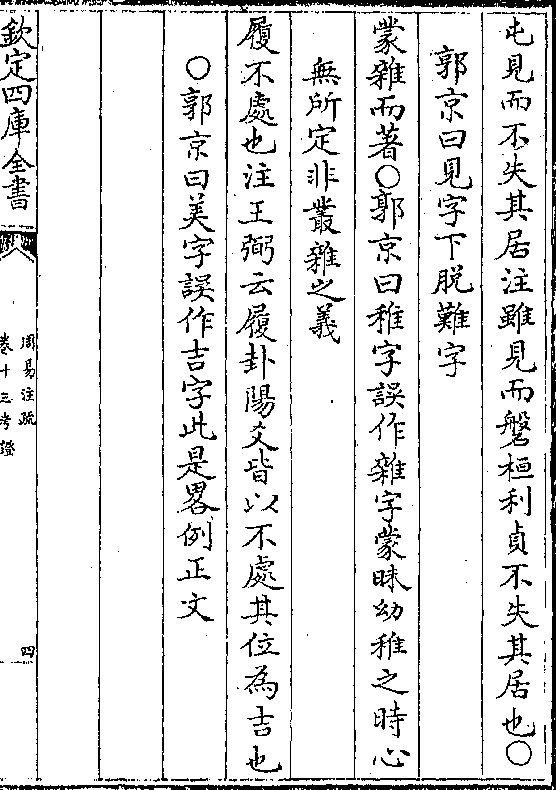 屯見而不失其居注雖見而磐桓利貞不失其居也○
郭京曰見字下脱難字
蒙雜而著○郭京曰稚字誤作雜字蒙昧幼稚之時心
無所定非叢雜之義
履不處也注王弼云履卦陽爻皆以不處其位為吉也
○郭京曰美字誤作吉字此是畧例正文
欽定四庫全書
周易注疏
卷十三考證
四